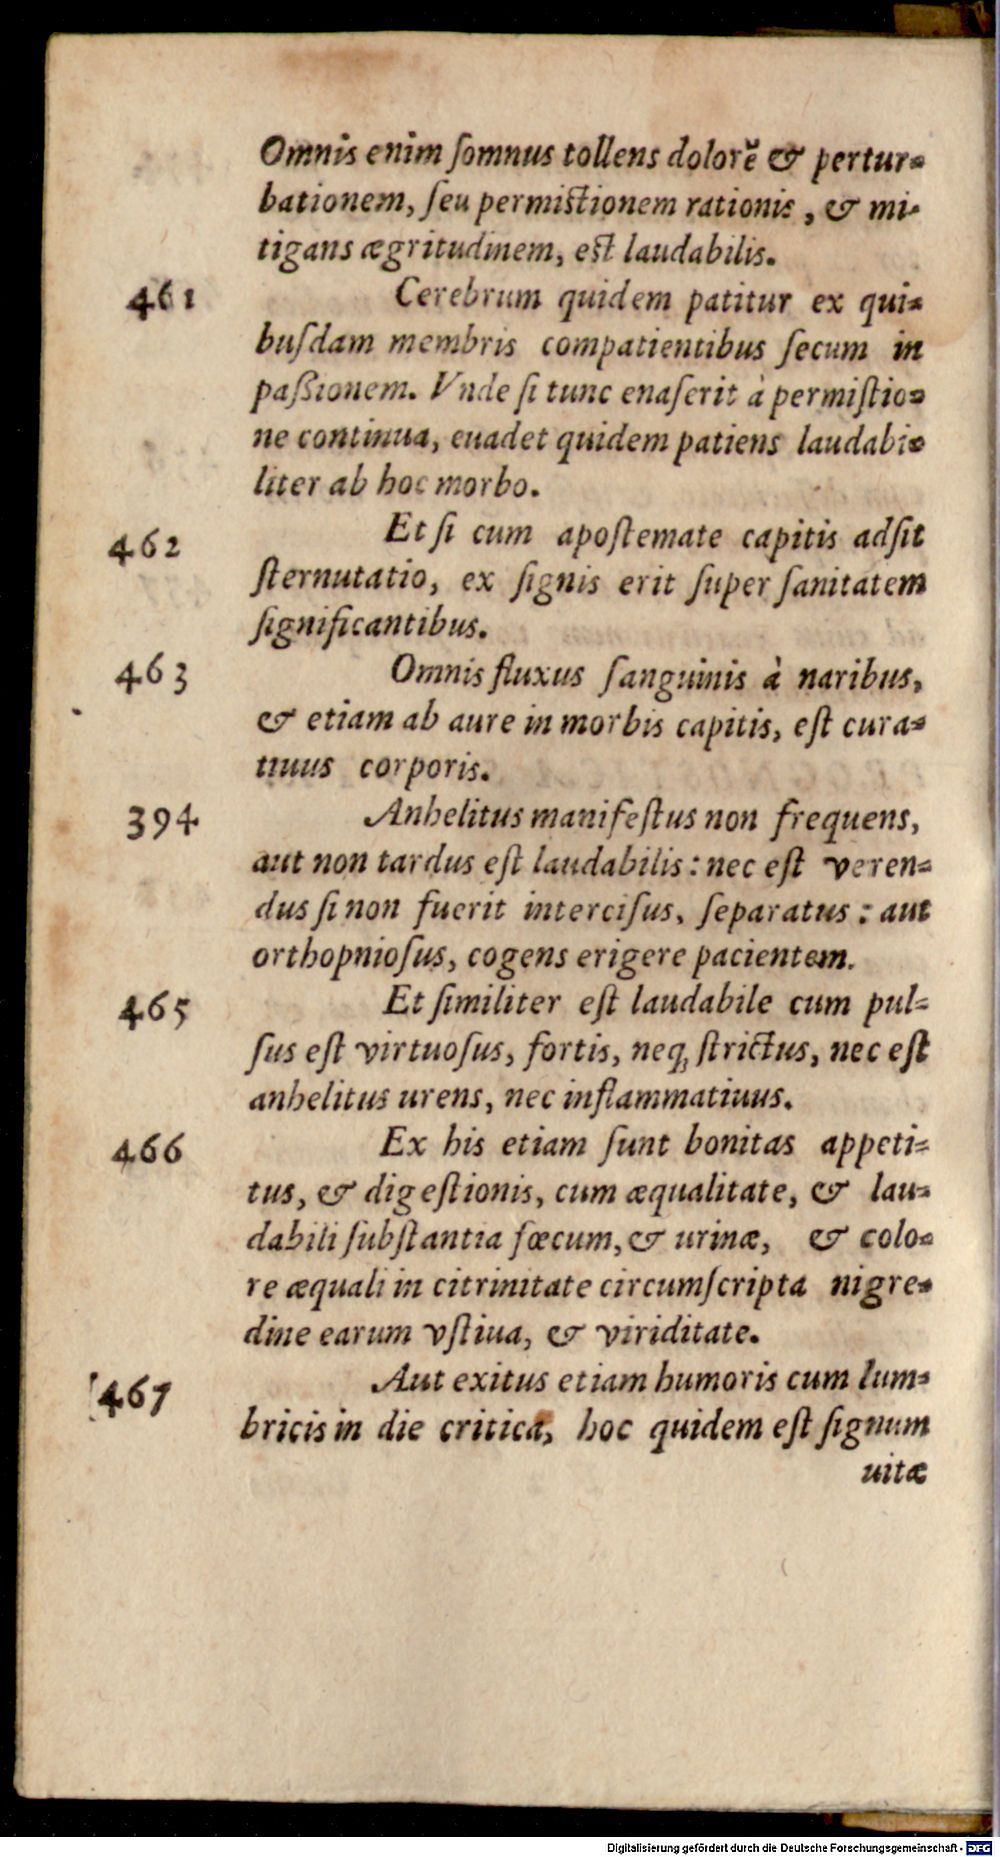 Omnis enim ſomnus tollens dolorẽ & pertur-
bationem, ſeu permistionem rationis, & mi-
tigans ægritudinem, est laudabilis.
461 Cerebrum quidem patitur ex qui-
buſdam membris compatientibus ſecum in
paſsionem. Vnde ſi tunc enaſerit à permiſtio-
ne continua, euadet quidem patiens laudabi-
liter ab hoc morbo.
462 Et ſi cum apoſtemate capitis adſit
ſternutatio, ex ſignis erit ſuper ſanitatem
ſignificantibus.
463 Omnis fluxus ſanguinis à naribus,
& etiam ab aure in morbis capitis, eſt cura-
tiuus corporis.
394 Anhelitus manifeſtus non frequens,
aut non tardus eſt laudabilis: nec eſt veren-
dus ſi non fuerit interciſus, ſeparatus: aut
orthopnioſus, cogens erigere pacientem.
465 Et ſimiliter eſt laudabile cum pul-
ſus eſt virtuoſus, fortis, neq; ſtrictus, nec eſt
anhelitus urens, nec inflammatiuus.
466 Ex his etiam ſunt bonitas appeti-
tus, & digeſtionis, cum æqualitate, & lau-
dabili ſubſtantia fœcum, & urinæ, & colo-
re æquali in citrinitate circumſcripta nigre-
dine earum vſtiua, & viriditate.
467 Aut exitus etiam humoris cum lum-
bricis in die critica, hoc quidem eſt ſignum
uitæ
Digitalisierung gefördert durch die Deutsche Forschungsgemeinschaft - DFG